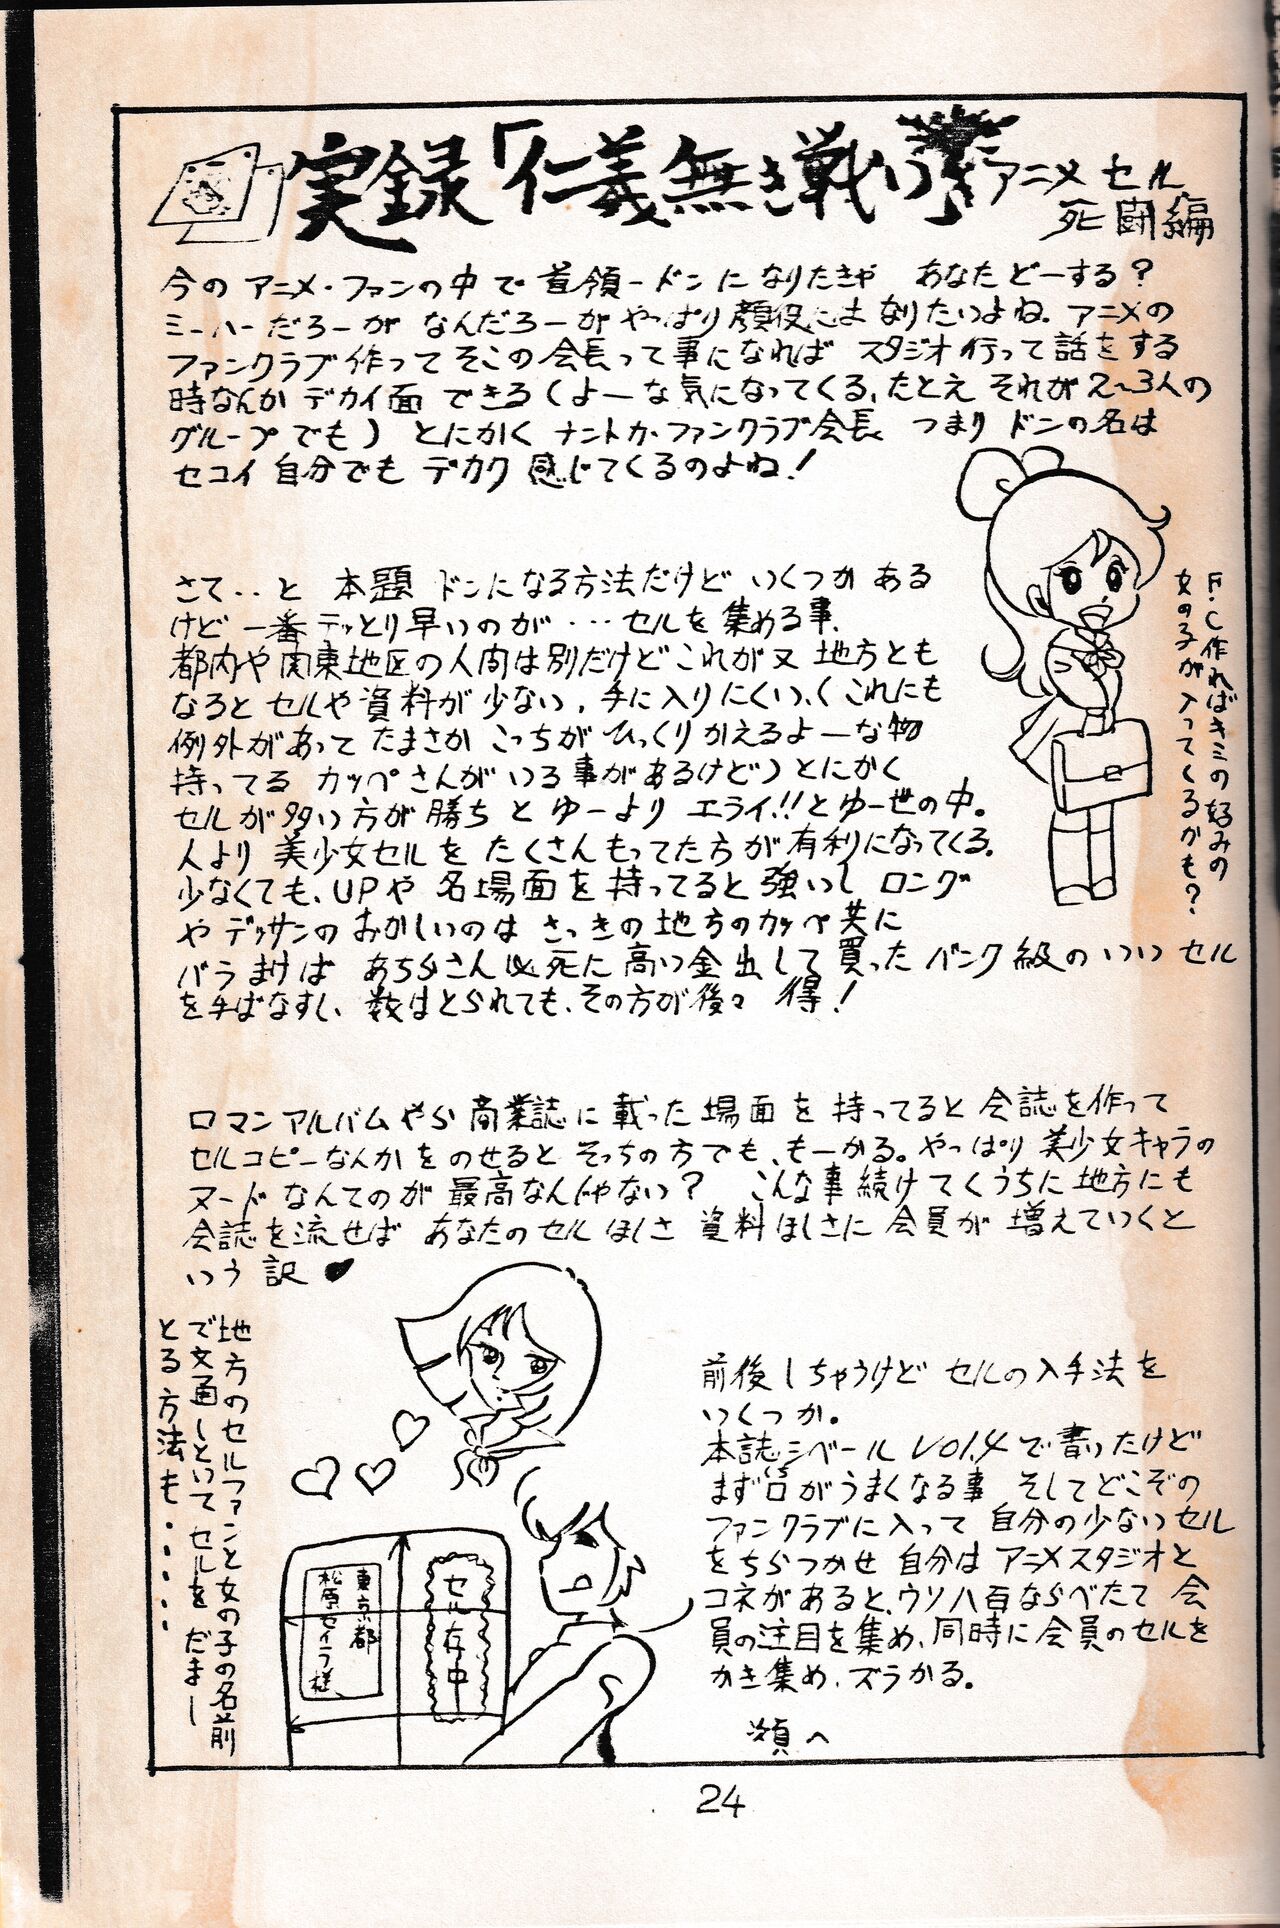 実録「仁義無き戦い」
アニメセル
死闘編
今の アニメ・ファンの中で 首領ードンに なりたきゃ あなたどーする?
ミーハーだろーが なんだろーが やっぱり顔役にはなりたいよね. アニメの
ファンクラブ作って そこの会長って事になれば スタジオ行って話をする
時なんか デカイ面 できる(よーな気になってくる、たとえ それが2~3人の
グループでも) とにかく ナントカ・ファンクラブ会長 つまり ドンの名は
セコイ 自分でも デカク 感じてくるのよね!
F・C作ればキミの好みの
女の子が入ってくるかも?
さて‥と 本題 ドンになる方法だけど いくつか ある
けど 一番 テッとり早いのが…セルを集める事.
都内や関東地区の人間は別だけどこれが又 地方とも
なると セルや資料が少ない. 手に入りにくい、(これにも
例外があって たまさか こっちが ひっくりかえるよーな物
持ってる カッペさんがいる事があるけど)とにかく
セルが多い方が勝ち とゆーより エライ!!とゆー世の中。
人より 美少女セルを たくさんもってた方が有利になってくる.
少なくても、UPや 名場面を 持ってると強いし ロング
や デッサンの おかしいのは さっきの 地方のカッペ共に
バラまけば あちらさん必死に高い金出して買った バンク級の いい セル
を手ばなすし、数はとられても、その方が後々 得!
ロマンアルバムやら商業誌に載った場面を持ってると会誌を作って
セルコピーなんかをのせると そっちの方でも、もーかる。やっぱり 美少女キャラの
ヌード なんてのが 最高なんじゃない? こんな事続けてくうちに地方にも
会誌を流せば あなたのセルほしさ 資料ほしさに会員が 増えていくと
いう 訳 ♥
地方のセルファンと女の子の名前
で文通しといて セルをだまし
とる方法も・・・・・
東京都
松原セイラ様
セル在中
前後しちゃうけど セルの入手法を
いくつか。
本誌シベール Vol.4で書いたけど
まず口がうまくなる事 そしてどこぞの
ファンクラブに入って 自分の少ないセル
をちらつかせ 自分は アニメスタジオと
コネがあると、ウソ八百ならべたて 会
員の注目を集め、同時に会員のセルを
かき集め、ズラかる。
次頁へ
24